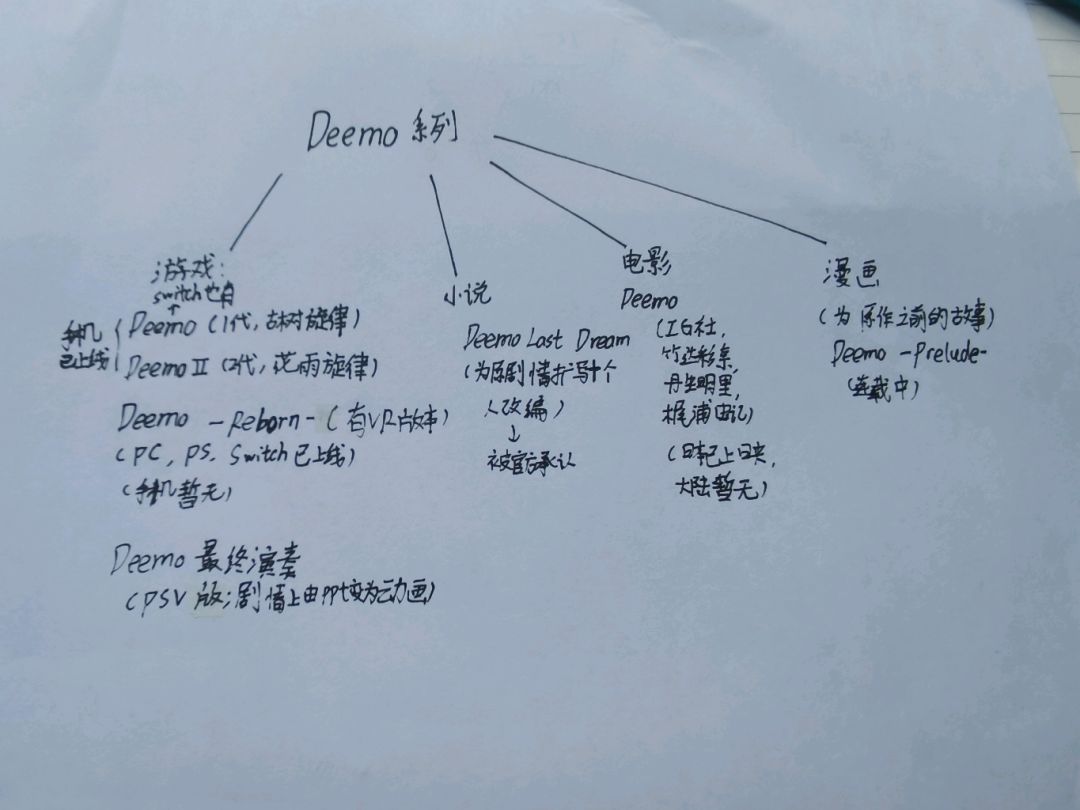 Deemo 系列
游戏:
switch也有
手机
已上线
Deemo (1代, 古树旋律)
Deemo II (2代, 花雨旋律)
Deemo -Reborn- (有VR版本)
(PC, PS, Switch已上线)
(手机暂无)
Deemo 最终演奏
(PSV版;剧情上由ppt变为动画)
小说
Deemo Last Dream
(为原剧情扩写+个
人改编)
↓
被官方承认
电影
Deemo
(IG社,
竹达彩奈,
丹生明里,
梶浦由记)
(日本已上映,
大陆暂无)
漫画
(为原作之前的故事)
Deemo -Prelude-
(连载中)